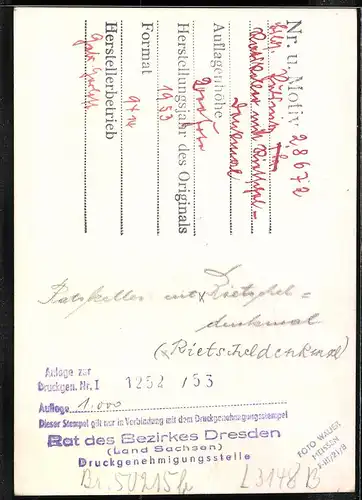 Nr. u. Motiv 28672
Ratskeller mit Rietschel-
denkmal
Auflagenhöhe
Herstellungsjahr des Originals
1953
Format
9x14
Herstellerbetrieb
Ratskeller mit Rietschel=
denkmal
(Rietscheldenkmal)
Anlage zur
Druckgen. Nr. I 1252 / 53
Auflage 1.000
Dieser Stempel gilt nur in Verbindung mit dem Druckgenehmigungsstempel
Rat des Bezirkes Dresden
(Land Sachsen)
Druckgenehmigungsstelle
FOTO
MEISSEN
L3148 B